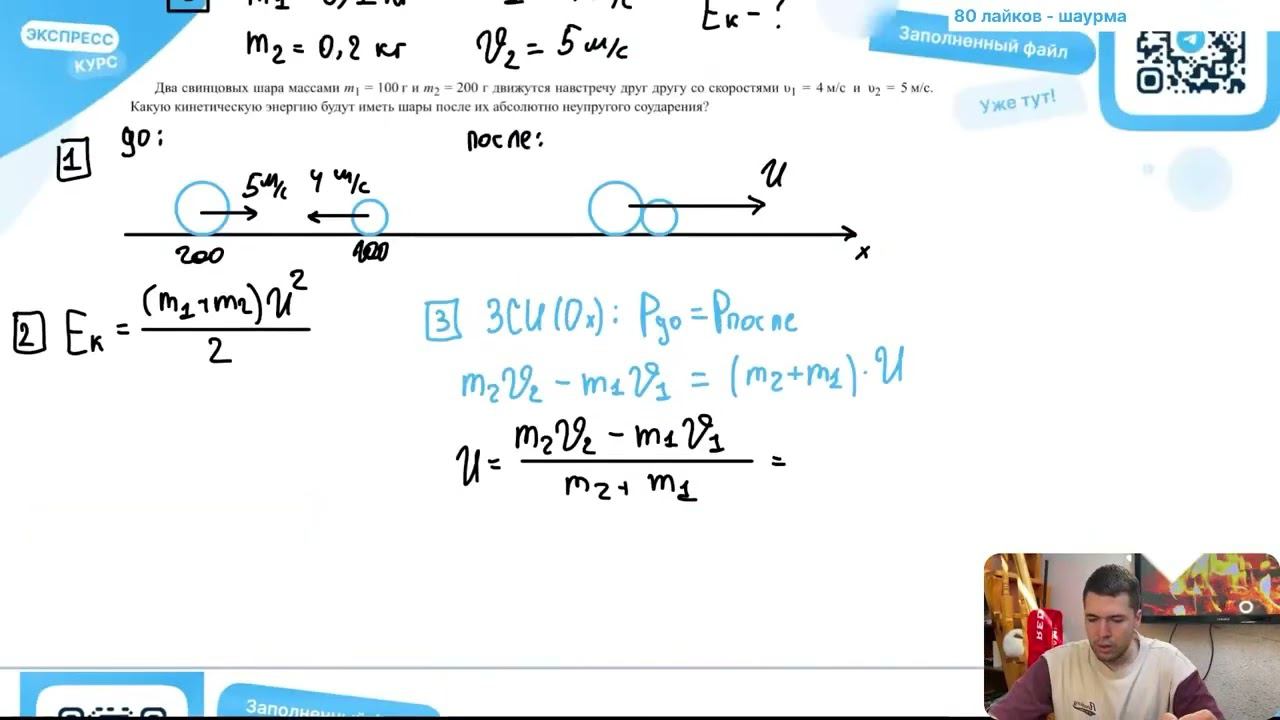 80 лайков - шаурма
ЭКСПРЕСС
КУРС
m₂ = 0,2 кг
υ₂ = 5 м/с
Eк - ?
Заполненный файл
Уже тут!
Два свинцовых шара массами m₁ = 100 г и m₂ = 200 г движутся навстречу друг другу со скоростями υ₁ = 4 м/с и υ₂ = 5 м/с.
Какую кинетическую энергию будут иметь шары после их абсолютно неупругого соударения?
1
до:
после:
5 м/с
4 м/с
U
200
100
x
2 Eк = (m₁+m₂)U² / 2
3 ЗСИ(Ox): Pдо = Pпосле
m₂υ₂ - m₁υ₁ = (m₂+m₁)·U
U = m₂υ₂ - m₁υ₁ / m₂ + m₁ =